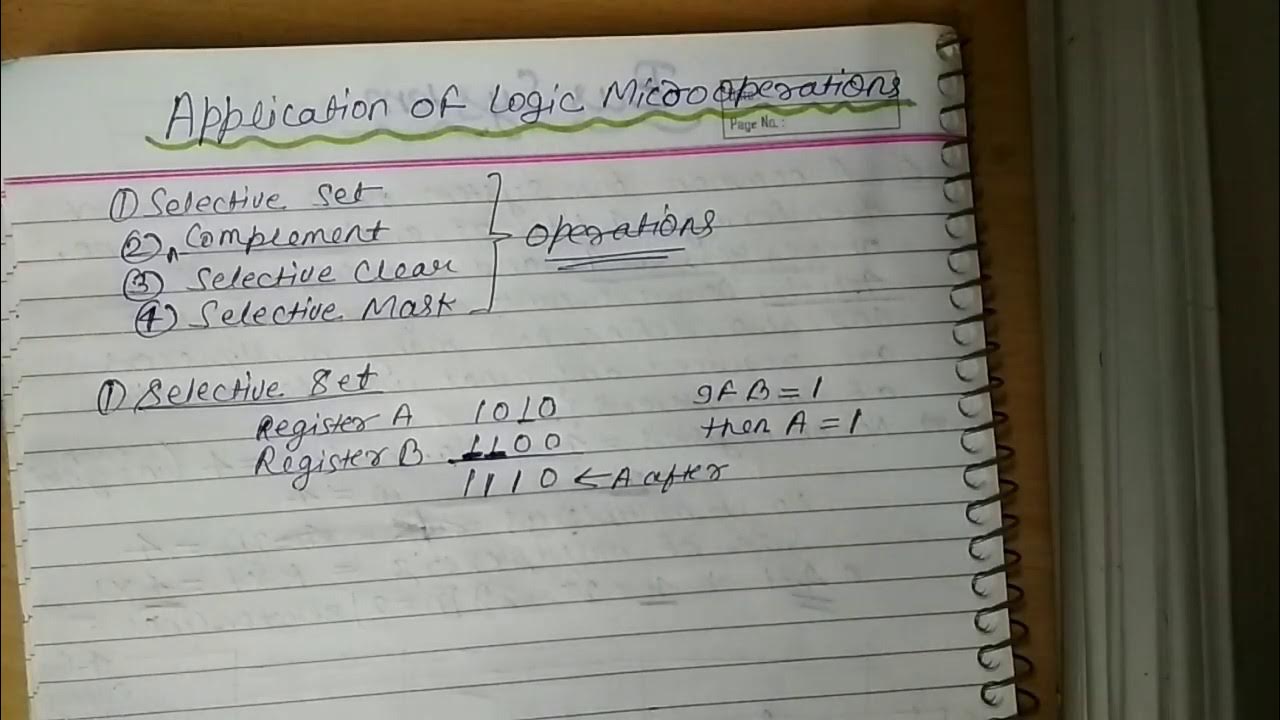 Application of Logic Microoperations
Page No.:
① Selective Set
② Complement
③ Selective Clear
④ Selective Mask
operations
① Selective Set
Register A 1010
Register B 1100
1110 < A after
If B = 1
then A = 1